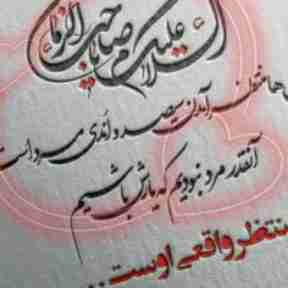 السلام علیک یا صاحب الزمان
منتظر آمدن سیصد و اندی مرد است
آنقدر مرد نبودیم که یارش باشیم
منتظر واقعی اوست...